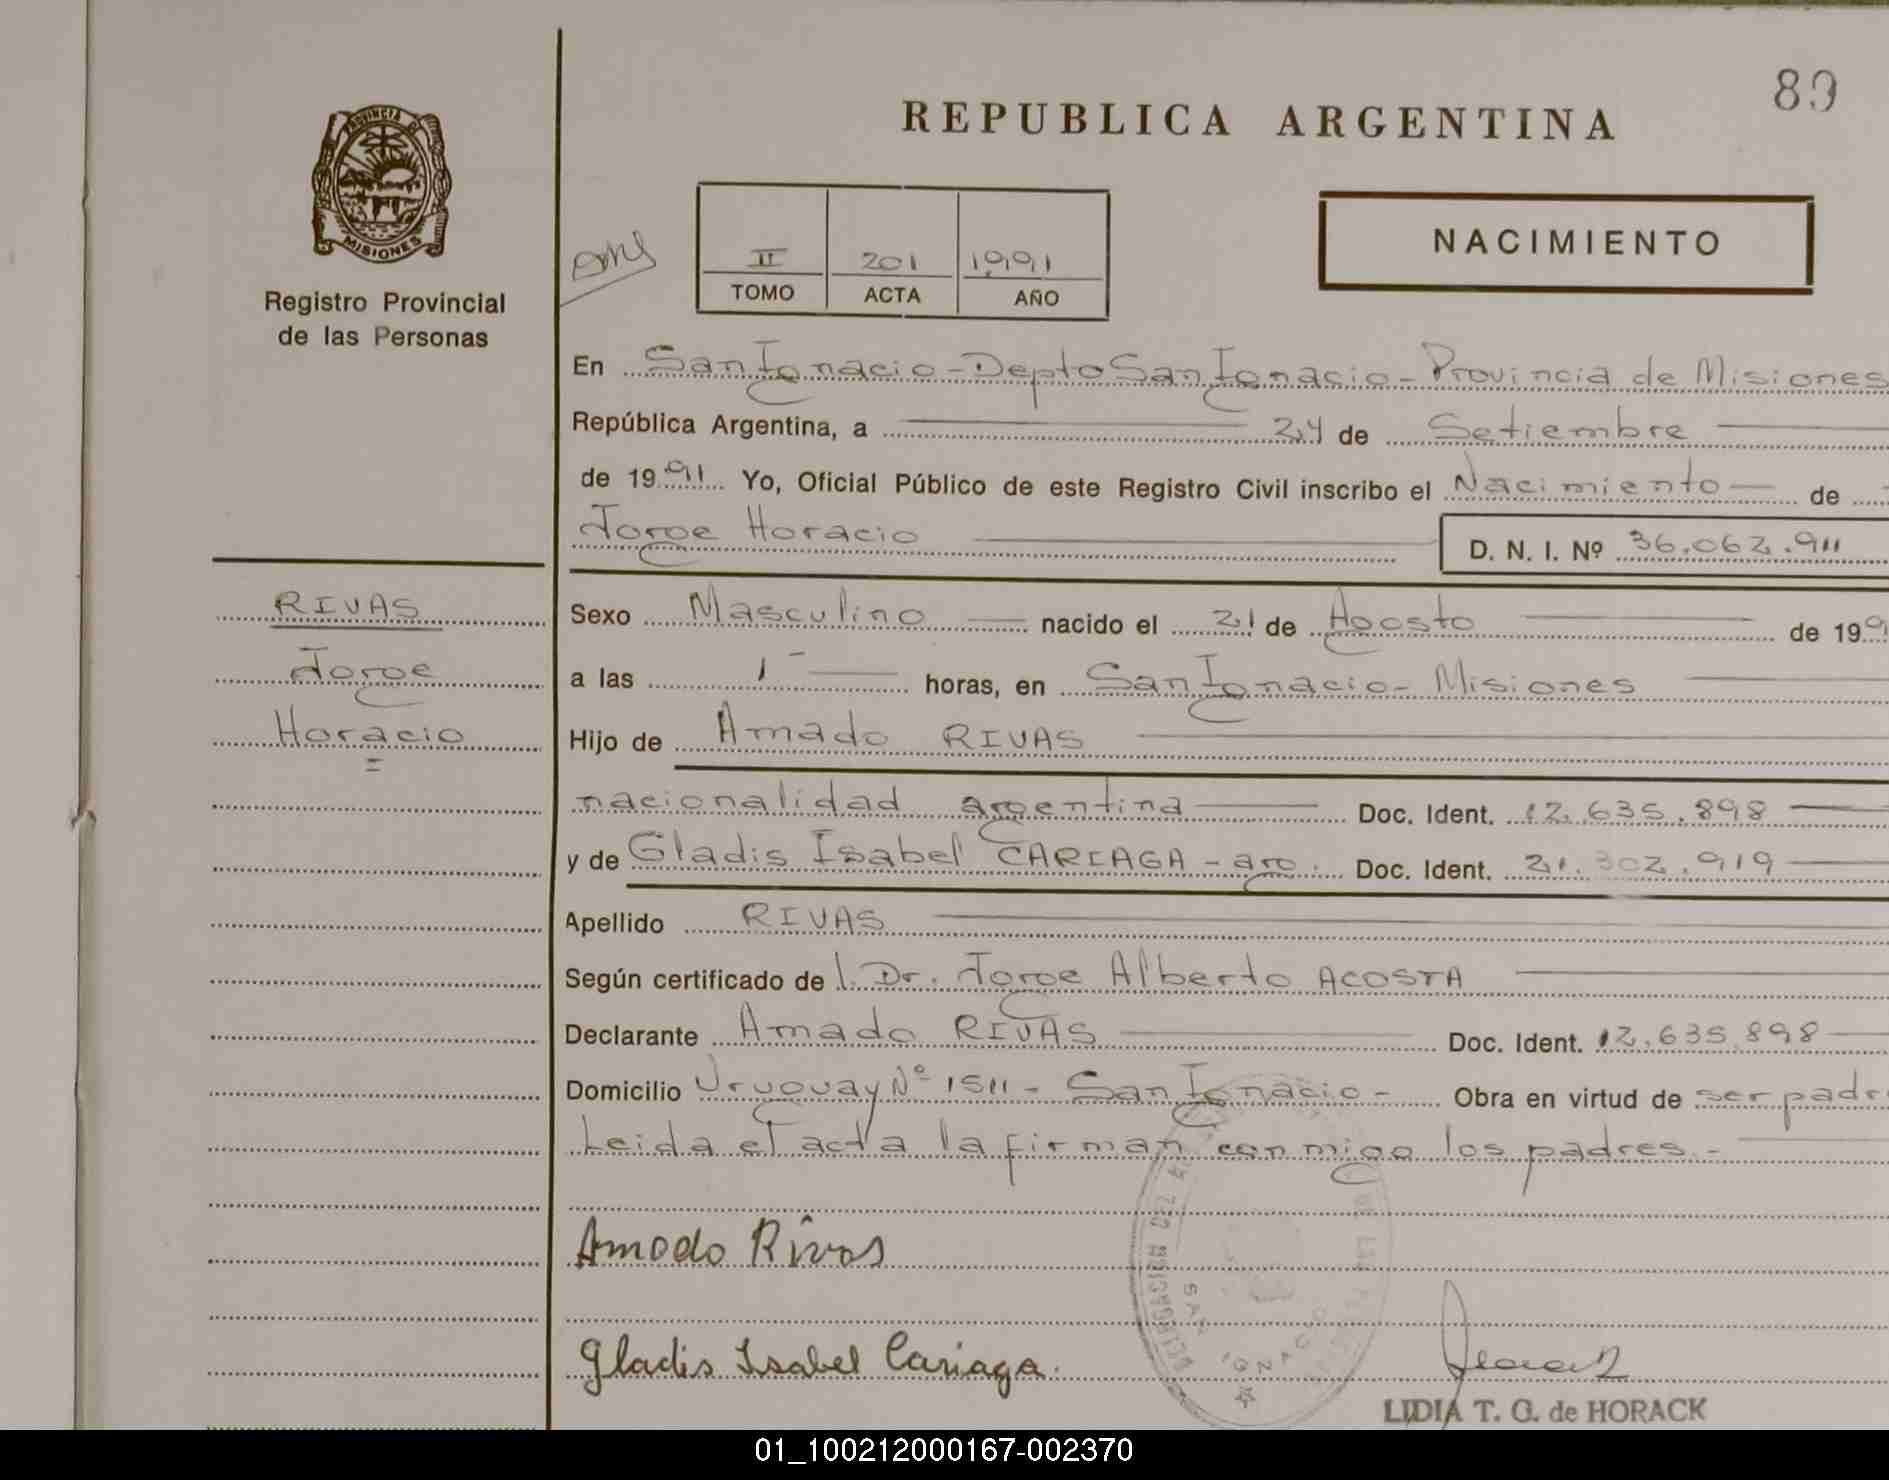 89
REPUBLICA ARGENTINA
PROVINCIA DE
MISIONES
Registro Provincial
de las Personas
II 201 1991
TOMO ACTA AÑO
NACIMIENTO
En San Ignacio - Depto San Ignacio - Provincia de Misiones
República Argentina, a 24 de Setiembre
de 1991 Yo, Oficial Público de este Registro Civil inscribo el Nacimiento de
Jorge Horacio D. N. I. Nº 36.062.911
RIVAS
Jorge
Horacio
Sexo Masculino nacido el 21 de Agosto de 199
a las 1 horas, en San Ignacio - Misiones
Hijo de Amado RIVAS
nacionalidad argentina Doc. Ident. 12.635.898
y de Gladis Isabel CARIAGA - arg. Doc. Ident. 21.302.919
Apellido RIVAS
Según certificado del Dr. Jorge Alberto ACOSTA
Declarante Amado RIVAS Doc. Ident. 12.635.898
Domicilio Uruguay Nº 1511 - San Ignacio - Obra en virtud de ser padr
Leida el acta la firman conmigo los padres.-
Amado Rivas
Gladis Isabel Cariaga.
SAN IGNACIO
LIDIA T. G. de HORACK
01_100212000167-002370